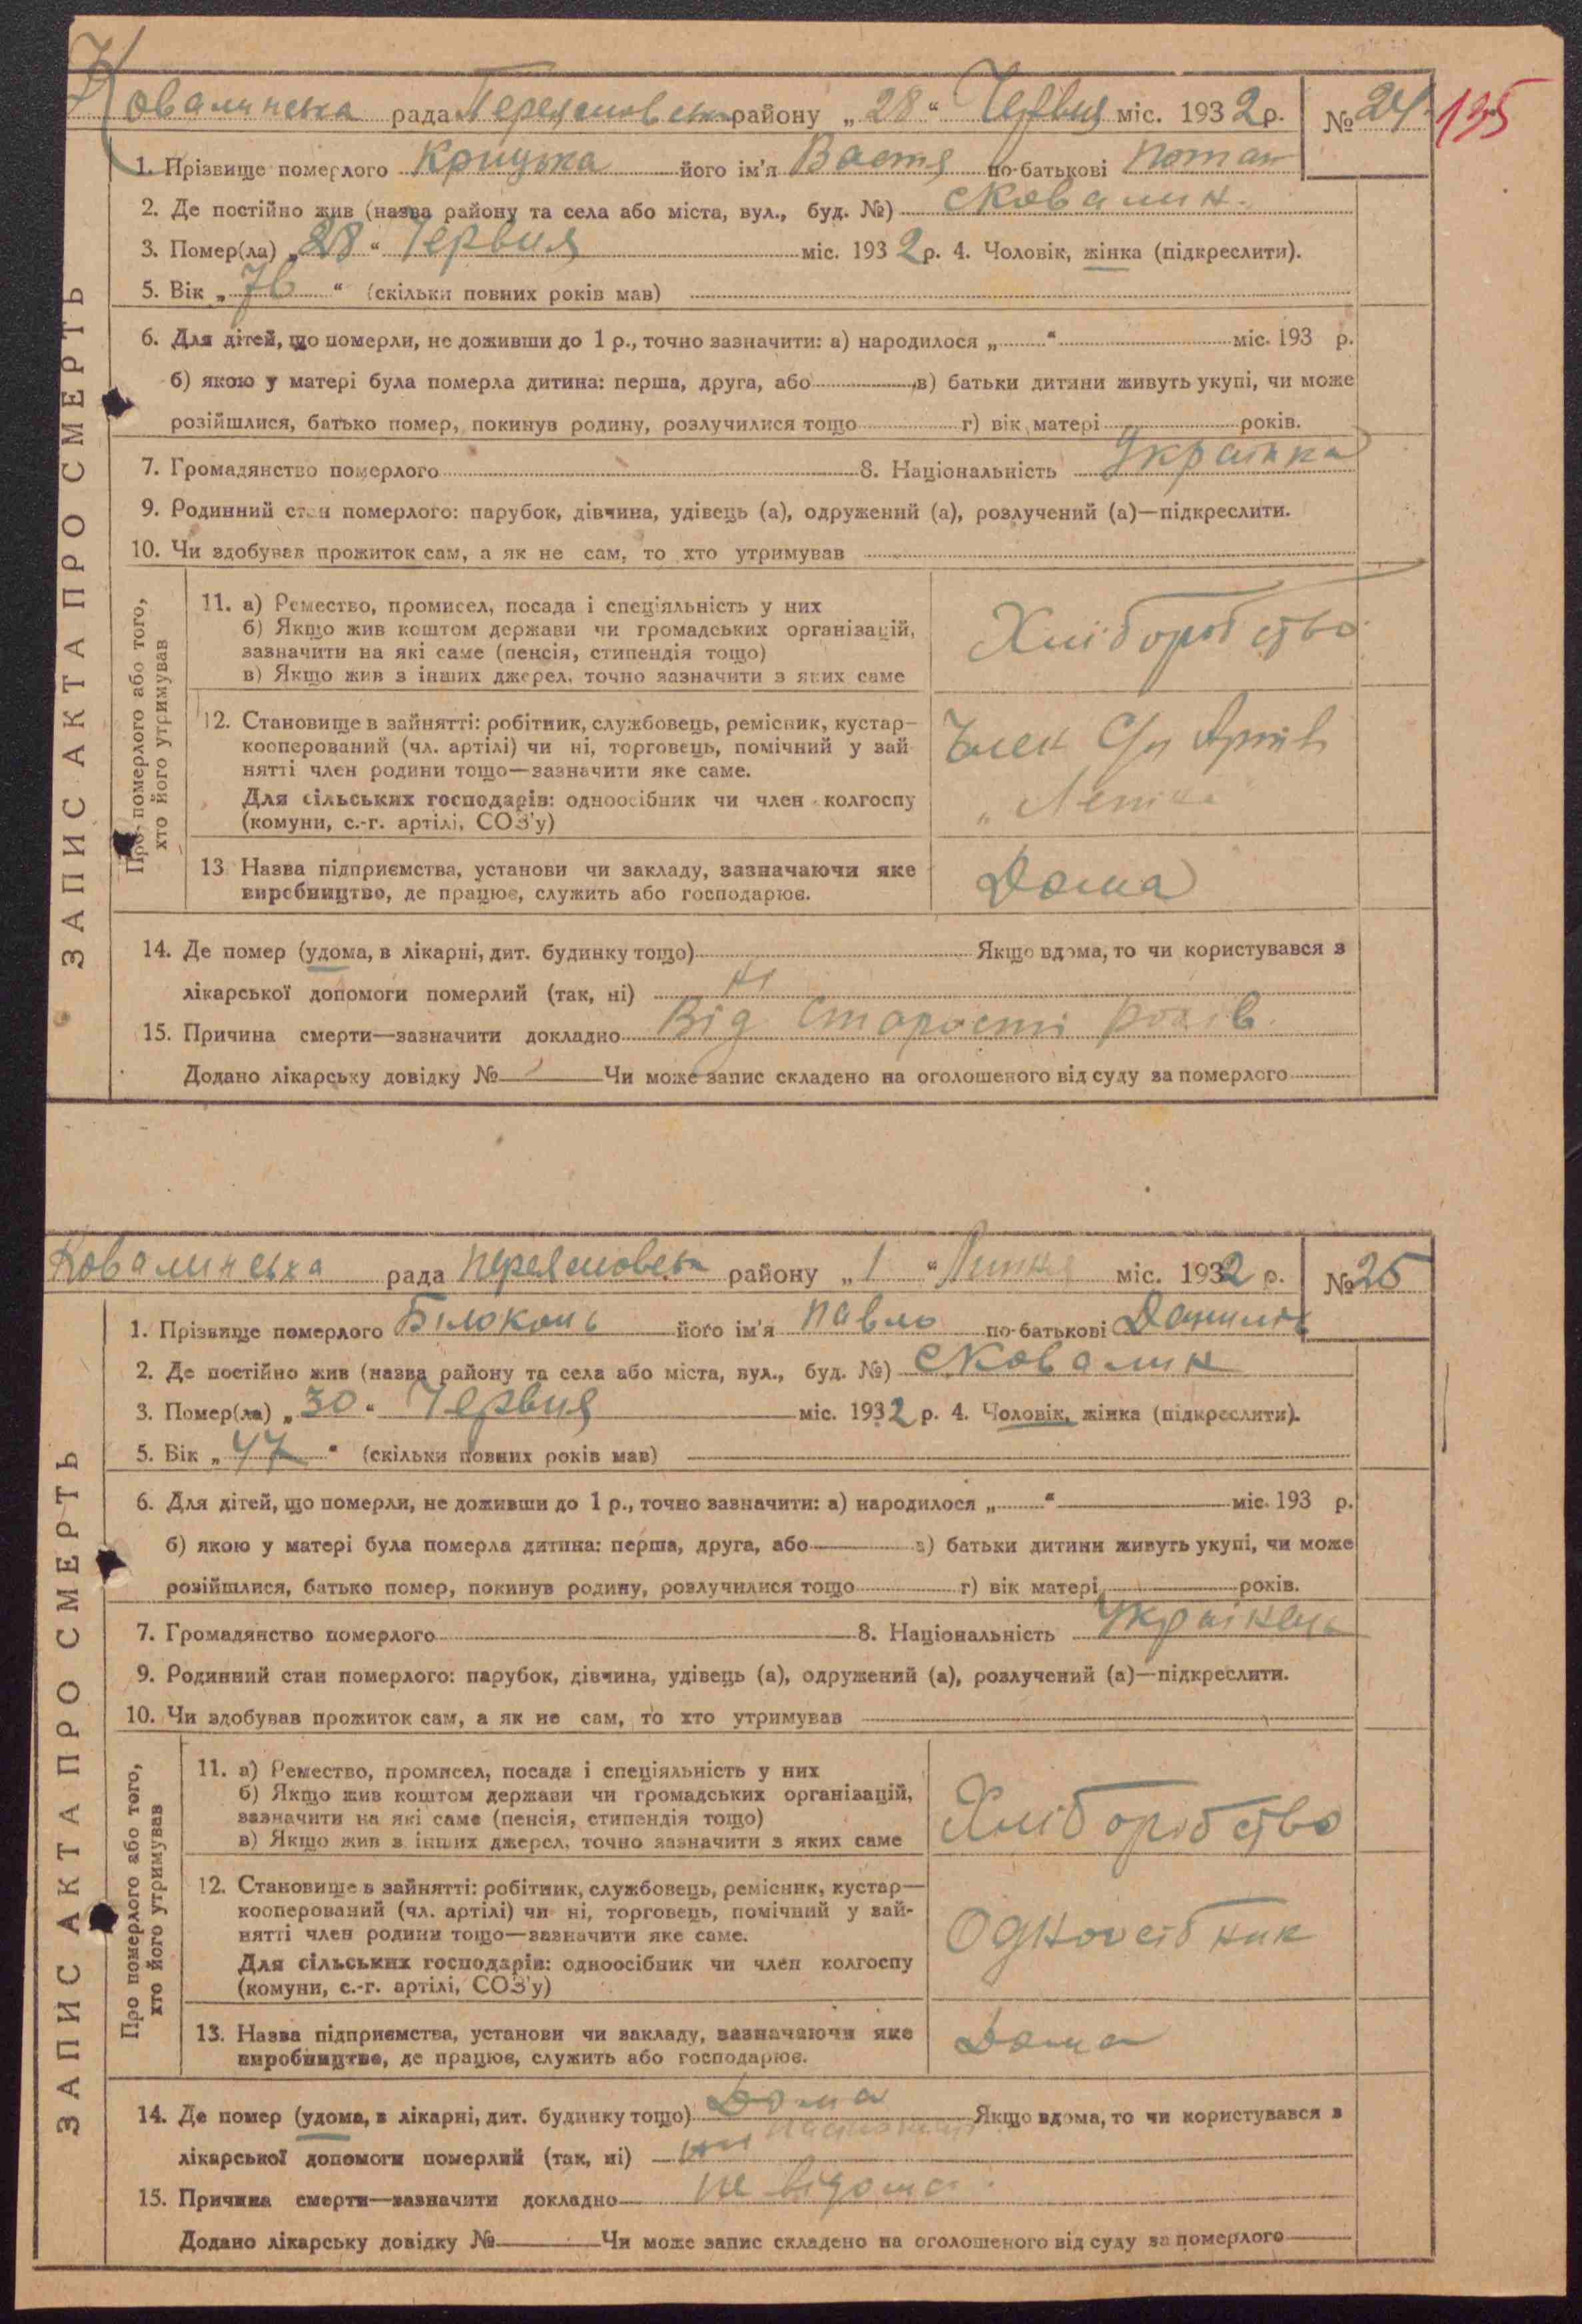 Ковалинська рада Переяславськ району „28“ Червня міс. 1932 р. № 24
135
1. Прізвище померлого Крицька його ім'я Вастя по-батькові Потап
2. Де постійно жив (назва району та села або міста, вул., буд. №) с Ковалин.
3. Помер(ла) „28“ Червня міс. 1932 р. 4. Чоловік, жінка (підкреслити).
5. Вік „76“ (скільки повних років мав)
6. Для дітей, що померли, не доживши до 1 р., точно зазначити: а) народилося „ “ міс. 193 р.
б) якою у матері була померла дитина: перша, друга, або в) батьки дитини живуть укупі, чи може
розійшлися, батько помер, покинув родину, розлучилися тощо г) вік матері років.
7. Громадянство померлого 8. Національність Українка
9. Родинний стан померлого: парубок, дівчина, удівець (а), одружений (а), розлучений (а)—підкреслити.
10. Чи здобував прожиток сам, а як не сам, то хто утримував
ЗАПИС АКТА ПРО СМЕРТЬ
Про померлого або того,
хто його утримував
11. а) Ремество, промисел, посада і спеціяльність у них
б) Якщо жив коштом держави чи громадських організацій,
зазначити на які саме (пенсія, стипендія тощо)
в) Якщо жив з інших джерел, точно зазначити з яких саме
Хліборобство
12. Становище в зайнятті: робітник, службовець, ремісник, кустар—
кооперований (чл. артілі) чи ні, торговець, помічний у зай
нятті член родини тощо—зазначити яке саме.
Для сільських господарів: одноосібник чи член колгоспу
(комуни, с.-г. артілі, СОЗ'у)
Член С/г Артіль
13 Назва підприємства, установи чи закладу, зазначаючи яке
виробництво, де працює, служить або господарює.
Дома
14. Де помер (удома, в лікарні, дит. будинку тощо) Якщо вдома, то чи користувався з
лікарської допомоги померлий (так, ні) ні
15. Причина смерти—зазначити докладно Від старости років.
Додано лікарську довідку № Чи може запис складено на оголошеного від суду за померлого
Ковалинська рада переясловськ району „1“ Липня міс. 1932 р. № 25
1. Прізвище померлого Білоконь його ім'я Павло по-батькові Данилов
2. Де постійно жив (назва району та села або міста, вул., буд. №) с Ковалин
3. Помер(ла) „30“ Червня міс. 1932 р. 4. Чоловік, жінка (підкреслити).
5. Вік „47“ (скільки повних років мав)
6. Для дітей, що померли, не доживши до 1 р., точно зазначити: а) народилося „ “ міс. 193 р.
б) якою у матері була померла дитина: перша, друга, або в) батьки дитини живуть укупі, чи може
розійшлися, батько помер, покинув родину, розлучилися тощо г) вік матері років.
7. Громадянство померлого 8. Національність Українець
9. Родинний стан померлого: парубок, дівчина, удівець (а), одружений (а), розлучений (а)—підкреслити.
10. Чи здобував прожиток сам, а як не сам, то хто утримував
ЗАПИС АКТА ПРО СМЕРТЬ
Про померлого або того,
хто його утримував
11. а) Ремество, промисел, посада і спеціяльність у них
б) Якщо жив коштом держави чи громадських організацій,
зазначити на які саме (пенсія, стипендія тощо)
в) Якщо жив з інших джерел, точно зазначити з яких саме
Хліборобство
12. Становище в зайнятті: робітник, службовець, ремісник, кустар—
кооперований (чл. артілі) чи ні, торговець, помічний у зай-
нятті член родини тощо—зазначити яке саме.
Для сільських господарів: одноосібник чи член колгоспу
(комуни, с.-г. артілі, СОЗ'у)
Одноосібник
13. Назва підприємства, установи чи закладу, зазначаючи яке
виробництво, де працює, служить або господарює.
Дома
14. Де помер (удома, в лікарні, дит. будинку тощо) Дома Якщо вдома, то чи користувався з
лікарської допомоги померлий (так, ні) ні
15. Причина смерти—зазначити докладно не відома.
Додано лікарську довідку № Чи може запис складено на оголошеного від суду за померлого